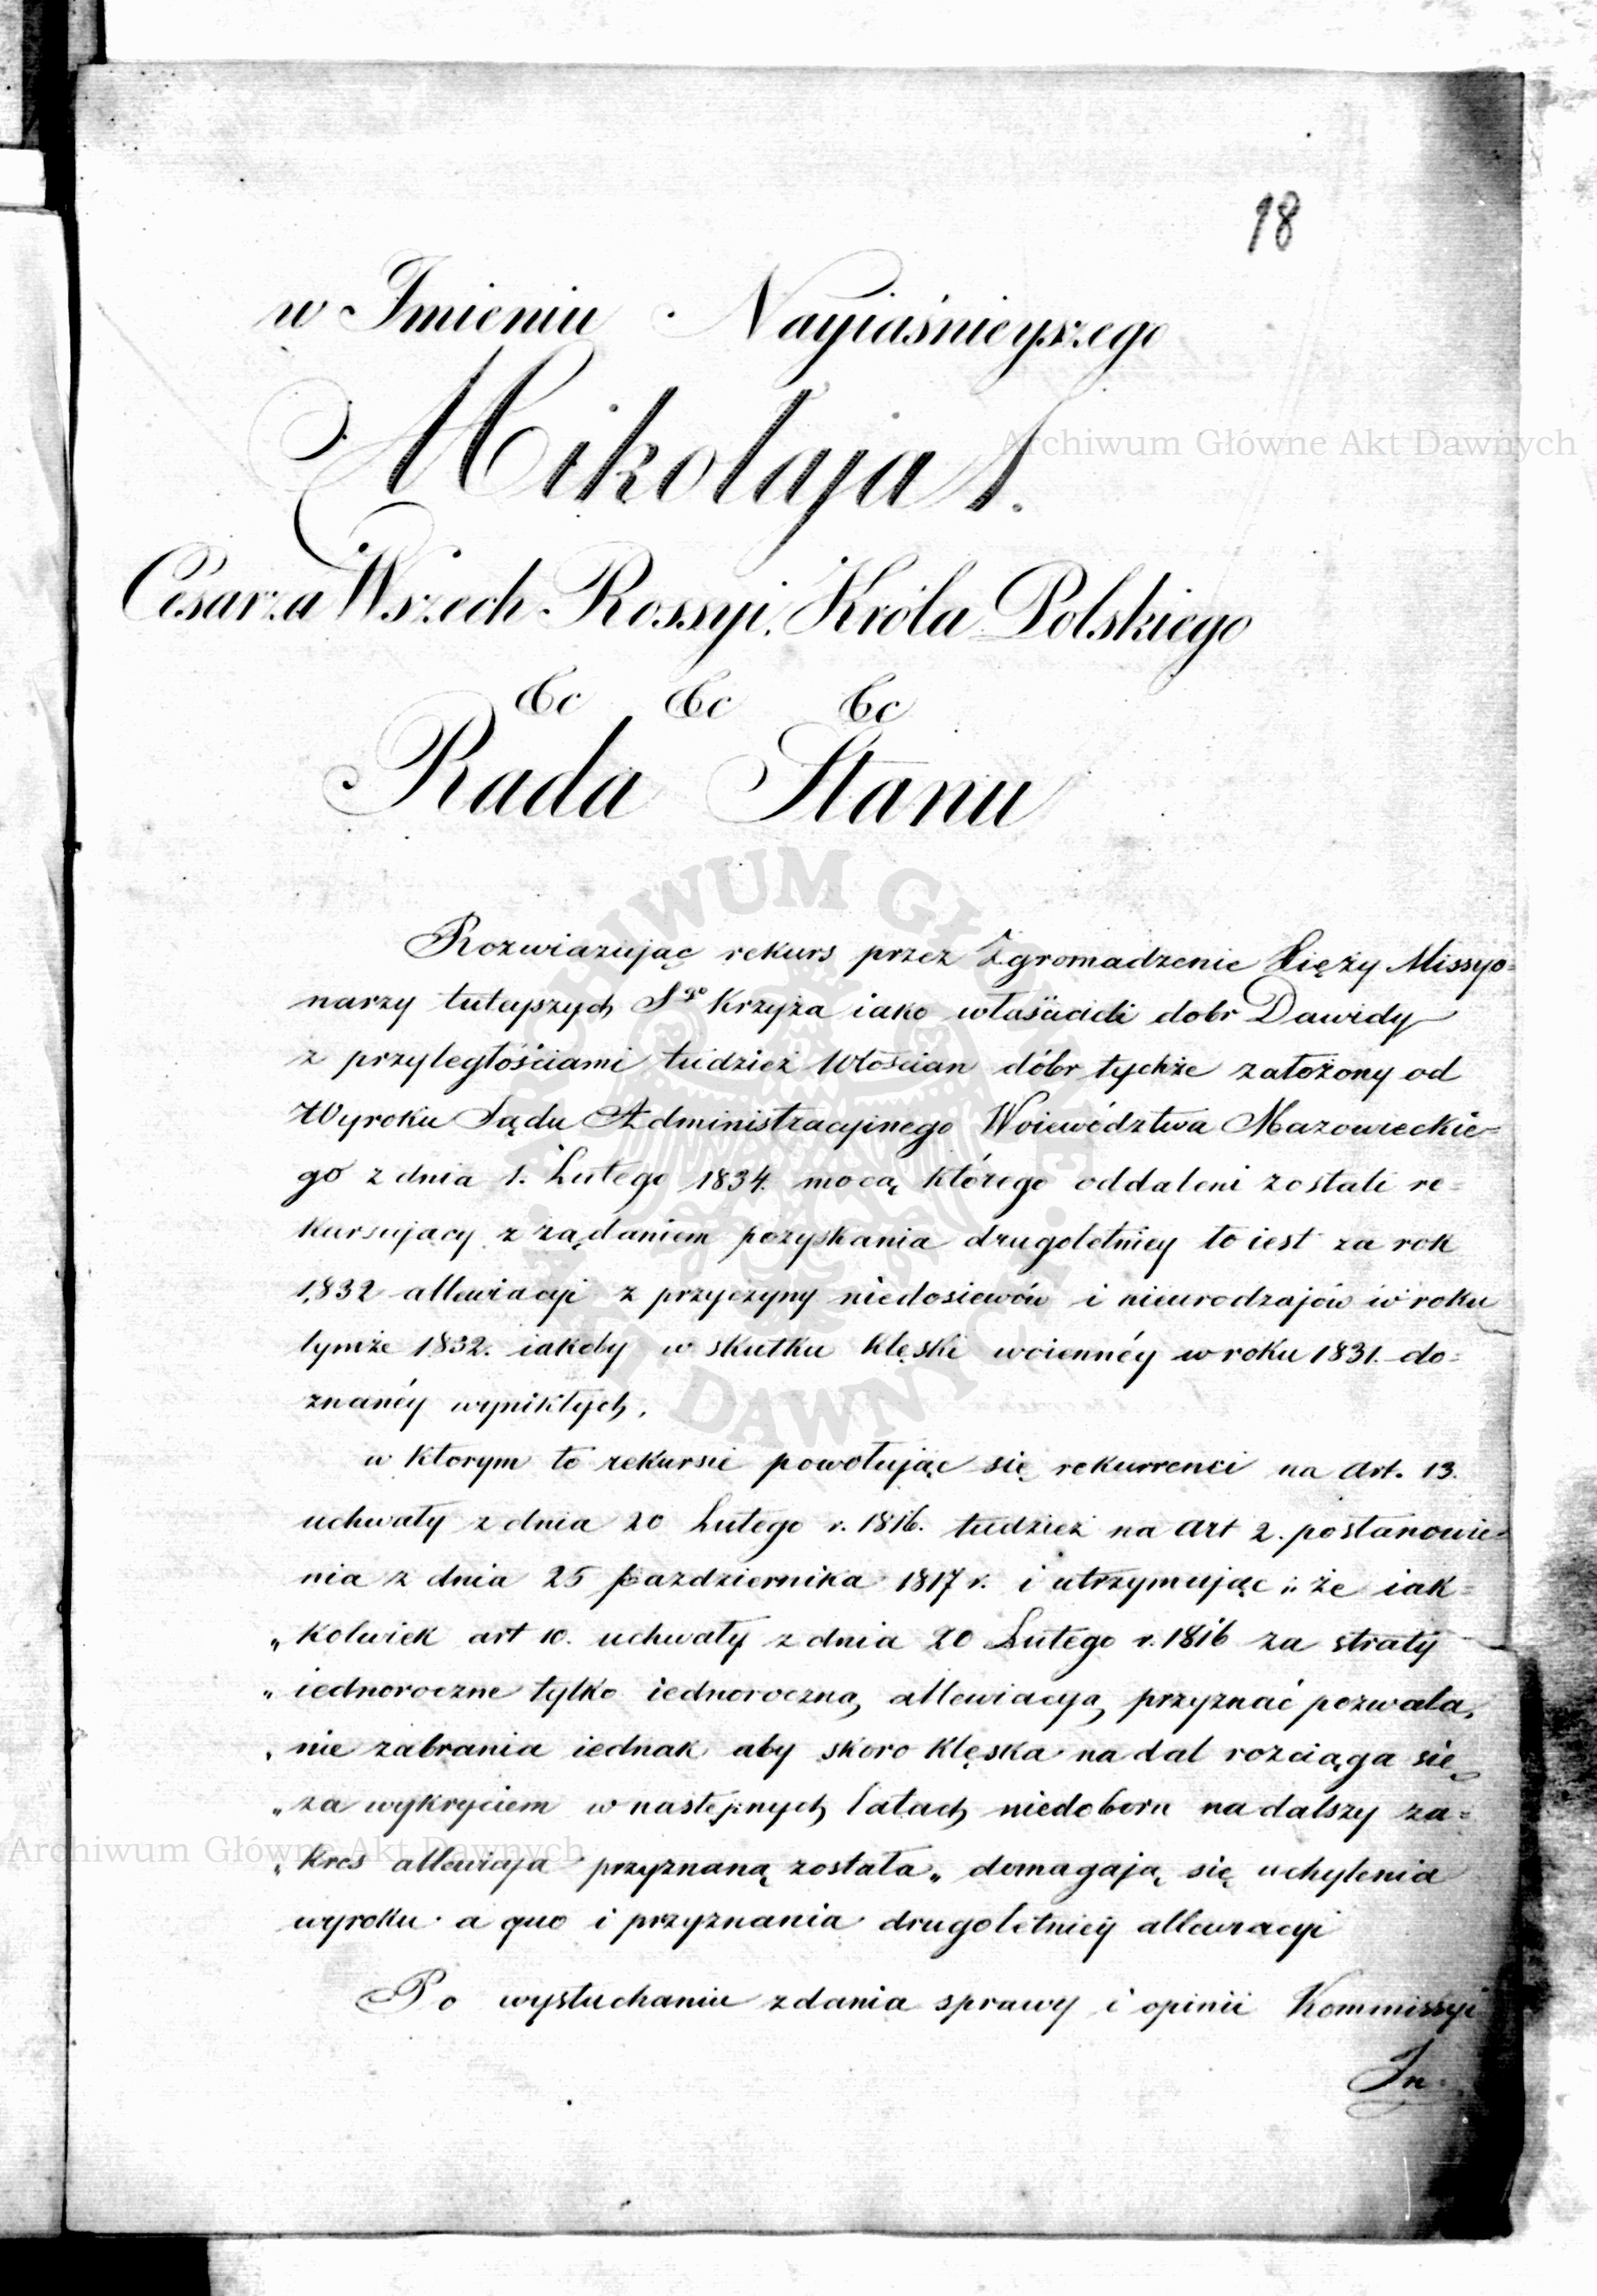 18
w Imieniu Nayiaśnieyszego
Mikołaja I.
Cesarza Wszech Rossyi, Króla Polskiego
&c &c &c
Rada Stanu
Rozwiazując rekurs przez Zgromadzenie Xięży Missyo=
narzy tuteyszych Sgo Krzyża iako właścicieli dobr Dawidy
z przyległościami tudzież Włościan dóbr tychże założony od
Wyroku Sądu Administracyinego Woiewództwa Mazowieckie=
go z dnia 1. Lutego 1834. mocą którego oddaleni zostali re=
kursujacy z żądaniem pozyskania drugoletniey to iest za rok
1832 allewiacyi z przyczyny niedosiewów i nieurodzajów w roku
tymże 1832. iakoby w skutku klęski woiennéy w roku 1831. do=
znanéy wynikłych.
w ktorym to rekursie powołując się rekurrenci na Art. 13.
uchwały z dnia 20 Lutego r. 1816. tudzież na Art 2. postanowie=
nia z dnia 25 Pazdziernika 1817 r. i utrzymując „ że iak=
„ kolwiek art 10. uchwały z dnia 20 Lutego r. 1816 za straty
„ iednoroczne tylko iednoroczną allewiacyą przyznać pozwala,
„ nie zabrania iednak aby skoro klęska na dal rozciąga się
„ za wykryciem w następnych latach niedoboru na dalszy za=
„ kres allewiaja przyznaną została „ domagają się uchylenia
wyroku a quo i przyznania drugoletniéy allewiacyi
Po wysłuchaniu zdania sprawy i opinii Kommissyi
In=
Archiwum Główne Akt Dawnych
ARCHIWUM GŁÓWNE AKT DAWNYCH
Archiwum Główne Akt Dawnych